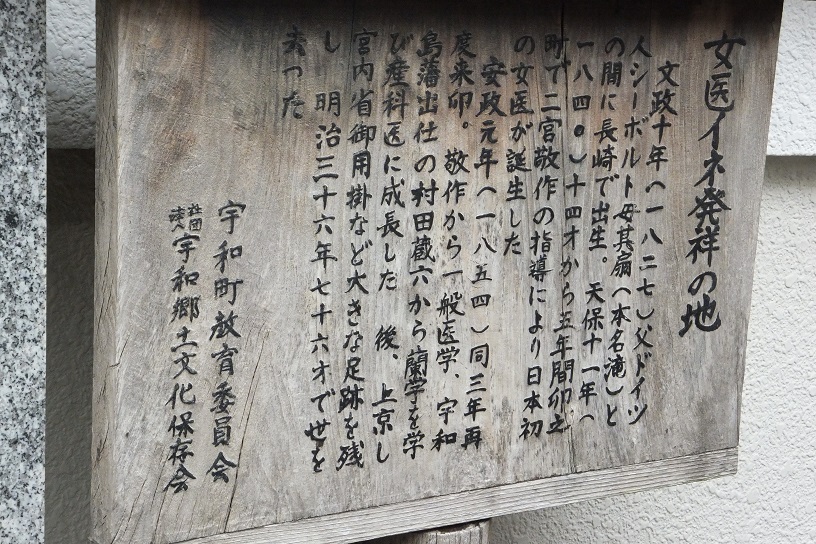 女医イネ発祥の地
文政十年(一八二七)父ドイツ
人シーボルト母其扇(本名滝)と
の間に長崎で出生。天保十一年(
一八四〇)十四才から五年間卯之
町で二宮敬作の指導により日本初
の女医が誕生した
安政元年(一八五四)同三年再
度来卯。敬作から一般医学、宇和
島藩出仕の村田蔵六から蘭学を学
び産科医に成長した 後、上京し
宮内省御用掛など大きな足跡を残
し 明治三十六年七十六才で世を
去った
宇和町教育委員会
社団法人宇和郷土文化保存会